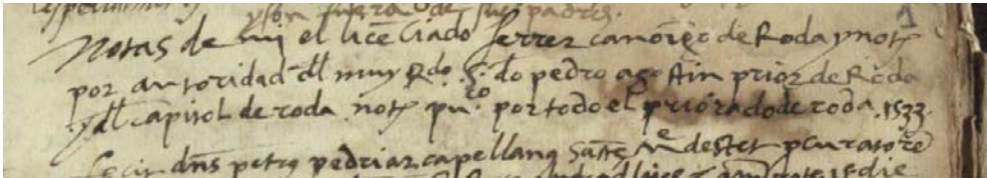 y son fuera de sus padres. 1
Notas de mi el licenciado ferrer canonigo de Roda y not.
por autoridad dl muy Rdo. S. do pedro agostin prior de Roda
y dl capitol de roda not. pu.co por todo el priorado de roda. 1533.
fecit dns petrus pedriar capellanus sante Me destet pcuratore